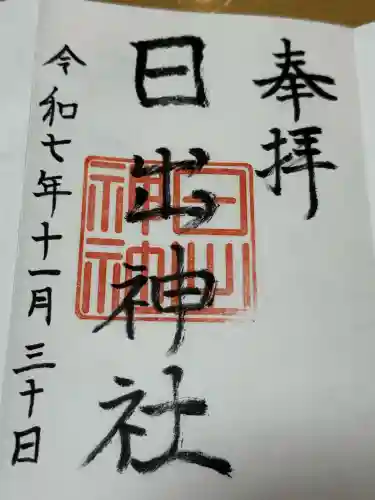 奉拝
日出神社
日出神神
令和七年十一月三十日